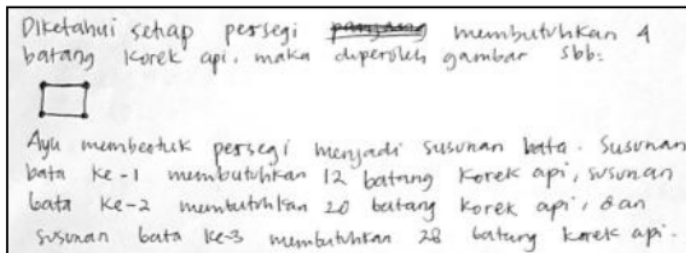 Diketahui setiap persegi panjang membutuhkan 4
batang korek api. maka diperoleh gambar sbb:
Ayu membentuk persegi menjadi susunan bata. Susunan
bata ke-1 membutuhkan 12 batang korek api, susunan
bata ke-2 membutuhkan 20 batang korek api, dan
susunan bata ke-3 membutuhkan 28 batang korek api.